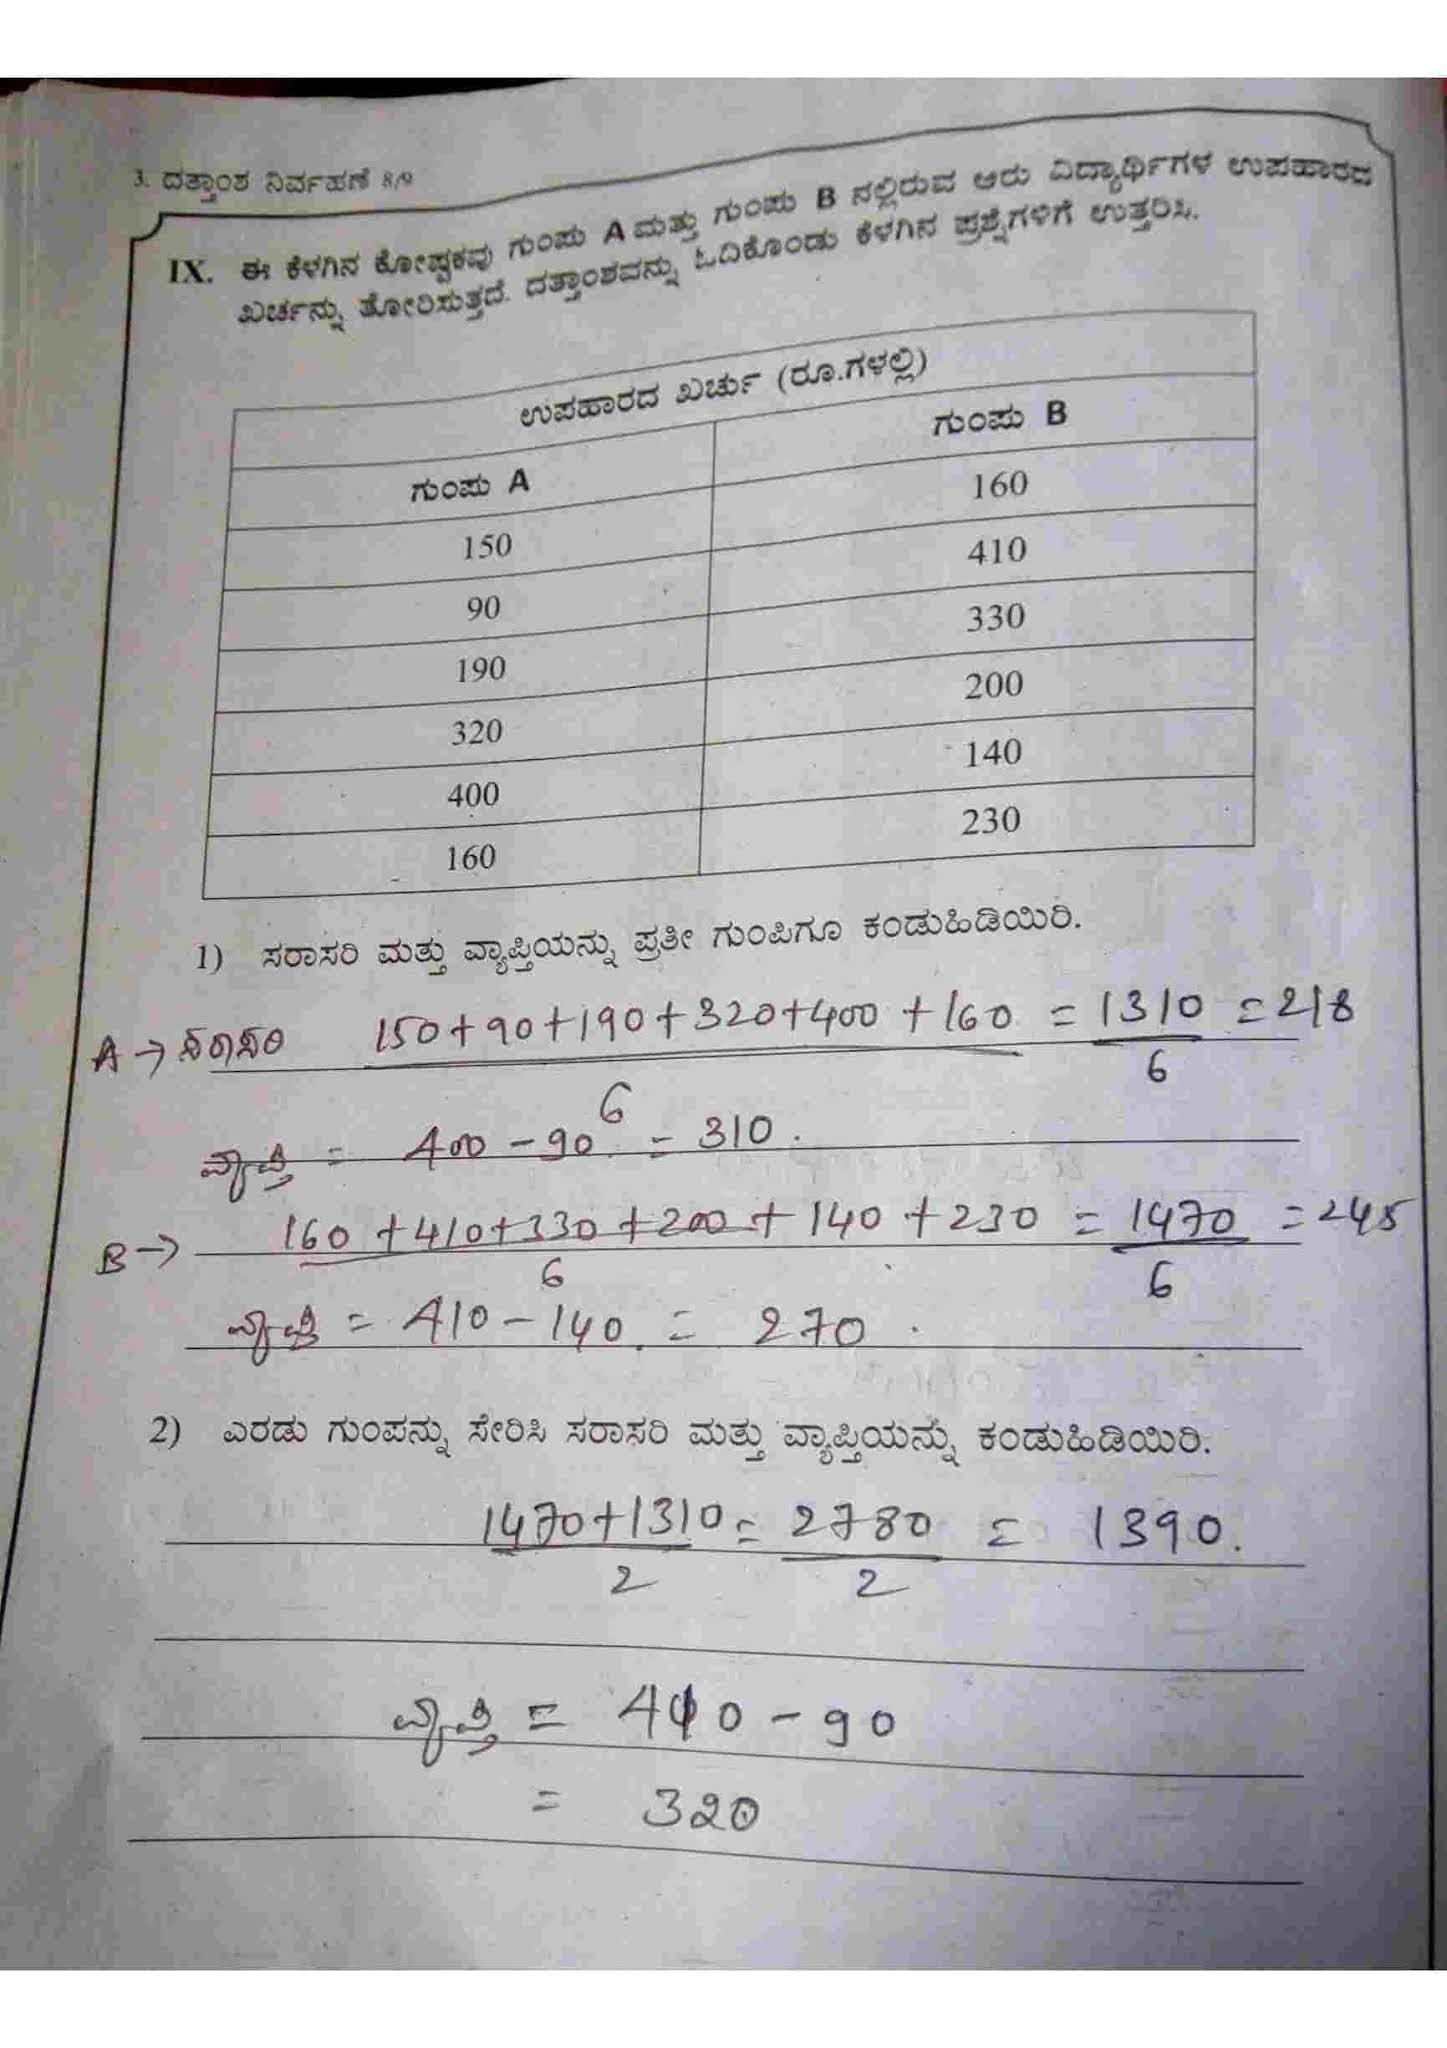 3. ದತ್ತಾಂಶ ನಿರ್ವಹಣೆ 8/9
IX. ಈ ಕೆಳಗಿನ ಕೋಷ್ಟಕವು ಗುಂಪು A ಮತ್ತು ಗುಂಪು B ನಲ್ಲಿರುವ ಆರು ವಿದ್ಯಾರ್ಥಿಗಳ ಉಪಹಾರದ
ಖರ್ಚನ್ನು ತೋರಿಸುತ್ತದೆ. ದತ್ತಾಂಶವನ್ನು ಓದಿಕೊಂಡು ಕೆಳಗಿನ ಪ್ರಶ್ನೆಗಳಿಗೆ ಉತ್ತರಿಸಿ.
ಉಪಹಾರದ ಖರ್ಚು (ರೂ.ಗಳಲ್ಲಿ)
ಗುಂಪು A ಗುಂಪು B
150 160
90 410
190 330
320 200
400 140
160 230
1) ಸರಾಸರಿ ಮತ್ತು ವ್ಯಾಪ್ತಿಯನ್ನು ಪ್ರತೀ ಗುಂಪಿಗೂ ಕಂಡುಹಿಡಿಯಿರಿ.
A → ಸರಾಸರಿ 150+90+190+320+400+160 = 1310 = 218
6 6
ವ್ಯಾಪ್ತಿ = 400 - 90 = 310.
B → 160+410+330+200+140+230 = 1470 = 245
6 6
ವ್ಯಾಪ್ತಿ = 410 - 140 = 270.
2) ಎರಡು ಗುಂಪನ್ನು ಸೇರಿಸಿ ಸರಾಸರಿ ಮತ್ತು ವ್ಯಾಪ್ತಿಯನ್ನು ಕಂಡುಹಿಡಿಯಿರಿ.
1470+1310 = 2780 = 1390.
2 2
ವ್ಯಾಪ್ತಿ = 410 - 90
= 320